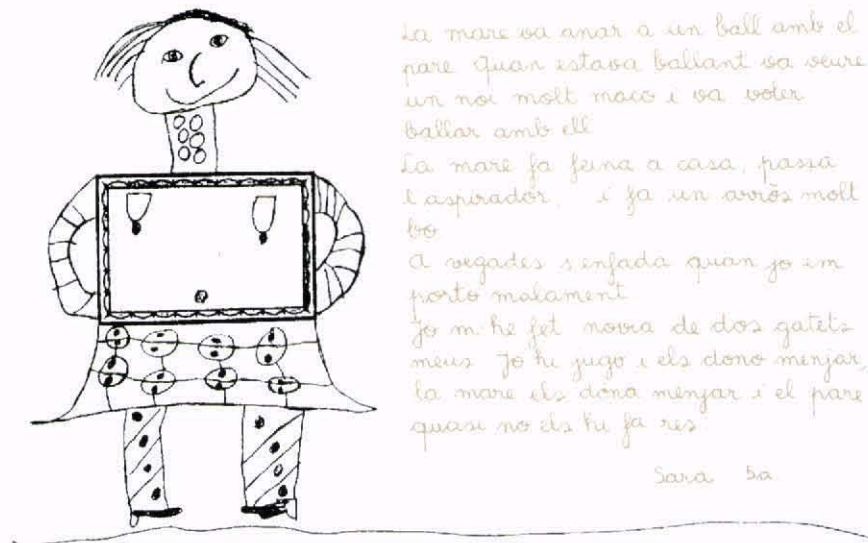 La mare va anar a un ball amb el
pare Quan estava ballant va veure
un noi molt maco i va voler
ballar amb ell
La mare fa feina a casa, passa
l aspirador, i fa un arròs molt
bo
A vegades s enfada quan jo em
porto malament
Jo m he fet novia de dos gatets
meus Jo hi jugo i els dono menjar,
la mare els dona menjar i el pare
quasi no els hi fa res
Sara 5a